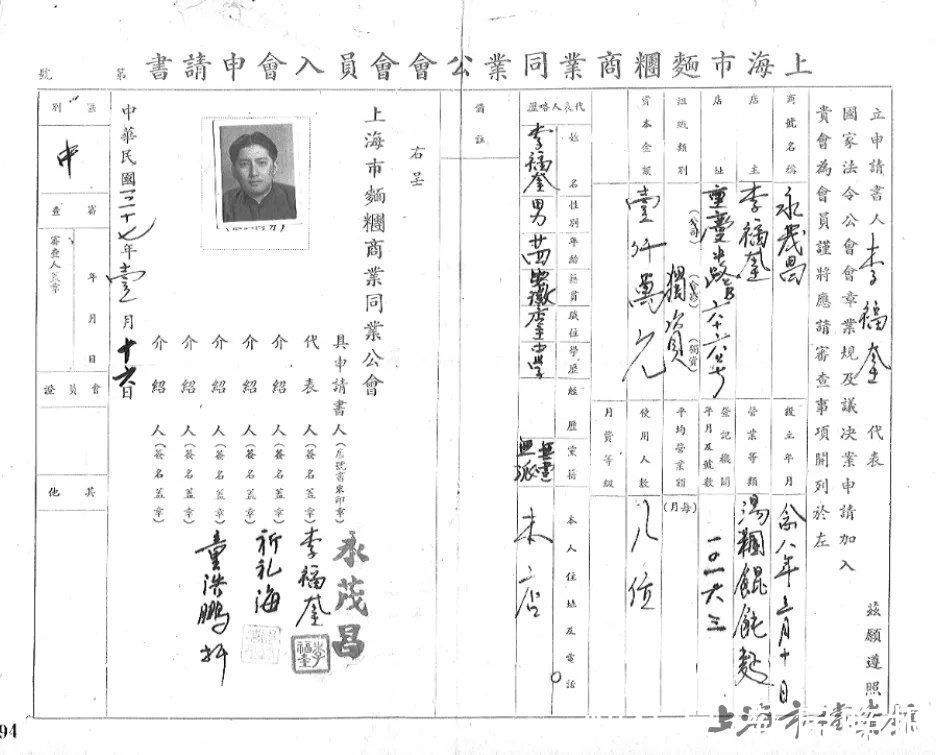 上海市麵糰商業同業公會會員入會申請書
第 號
立申請書人李福奎 代表 茲願遵照
國家法令公會會章業規及議決案申請加入
貴會為會員謹將應請審查事項開列於左
商號名稱 永茂昌 設立年月 八年三月十日
店主 李福奎 營業等類 湯糰餛飩麵
店址 重慶 登記機關年月及號數 一〇一六三
組織類別 (公司) (合夥) (獨資) 獨資 平均營業額 (每月)
資本金額 壹仟萬元 使用人數 八位
月費等級
代表人略歷
姓名 性別 年齡 籍貫 職位 學歷 經歷 黨籍 本人住址及電話
李福奎 男 安徽 無黨無派 本店
備註
右呈
上海市麵糰商業同業公會
具申請書人(店號書柬印章) 永茂昌
代表人(簽名蓋章) 李福奎
介紹人(簽名蓋章) 祈礼海
介紹人(簽名蓋章) 童洪鵬
介紹人(簽名蓋章)
介紹人(簽名蓋章)
介紹人(簽名蓋章)
中華民國三十七年壹月十六日
區別 中
審查 年月日
審查人簽章
會員證
其他
94